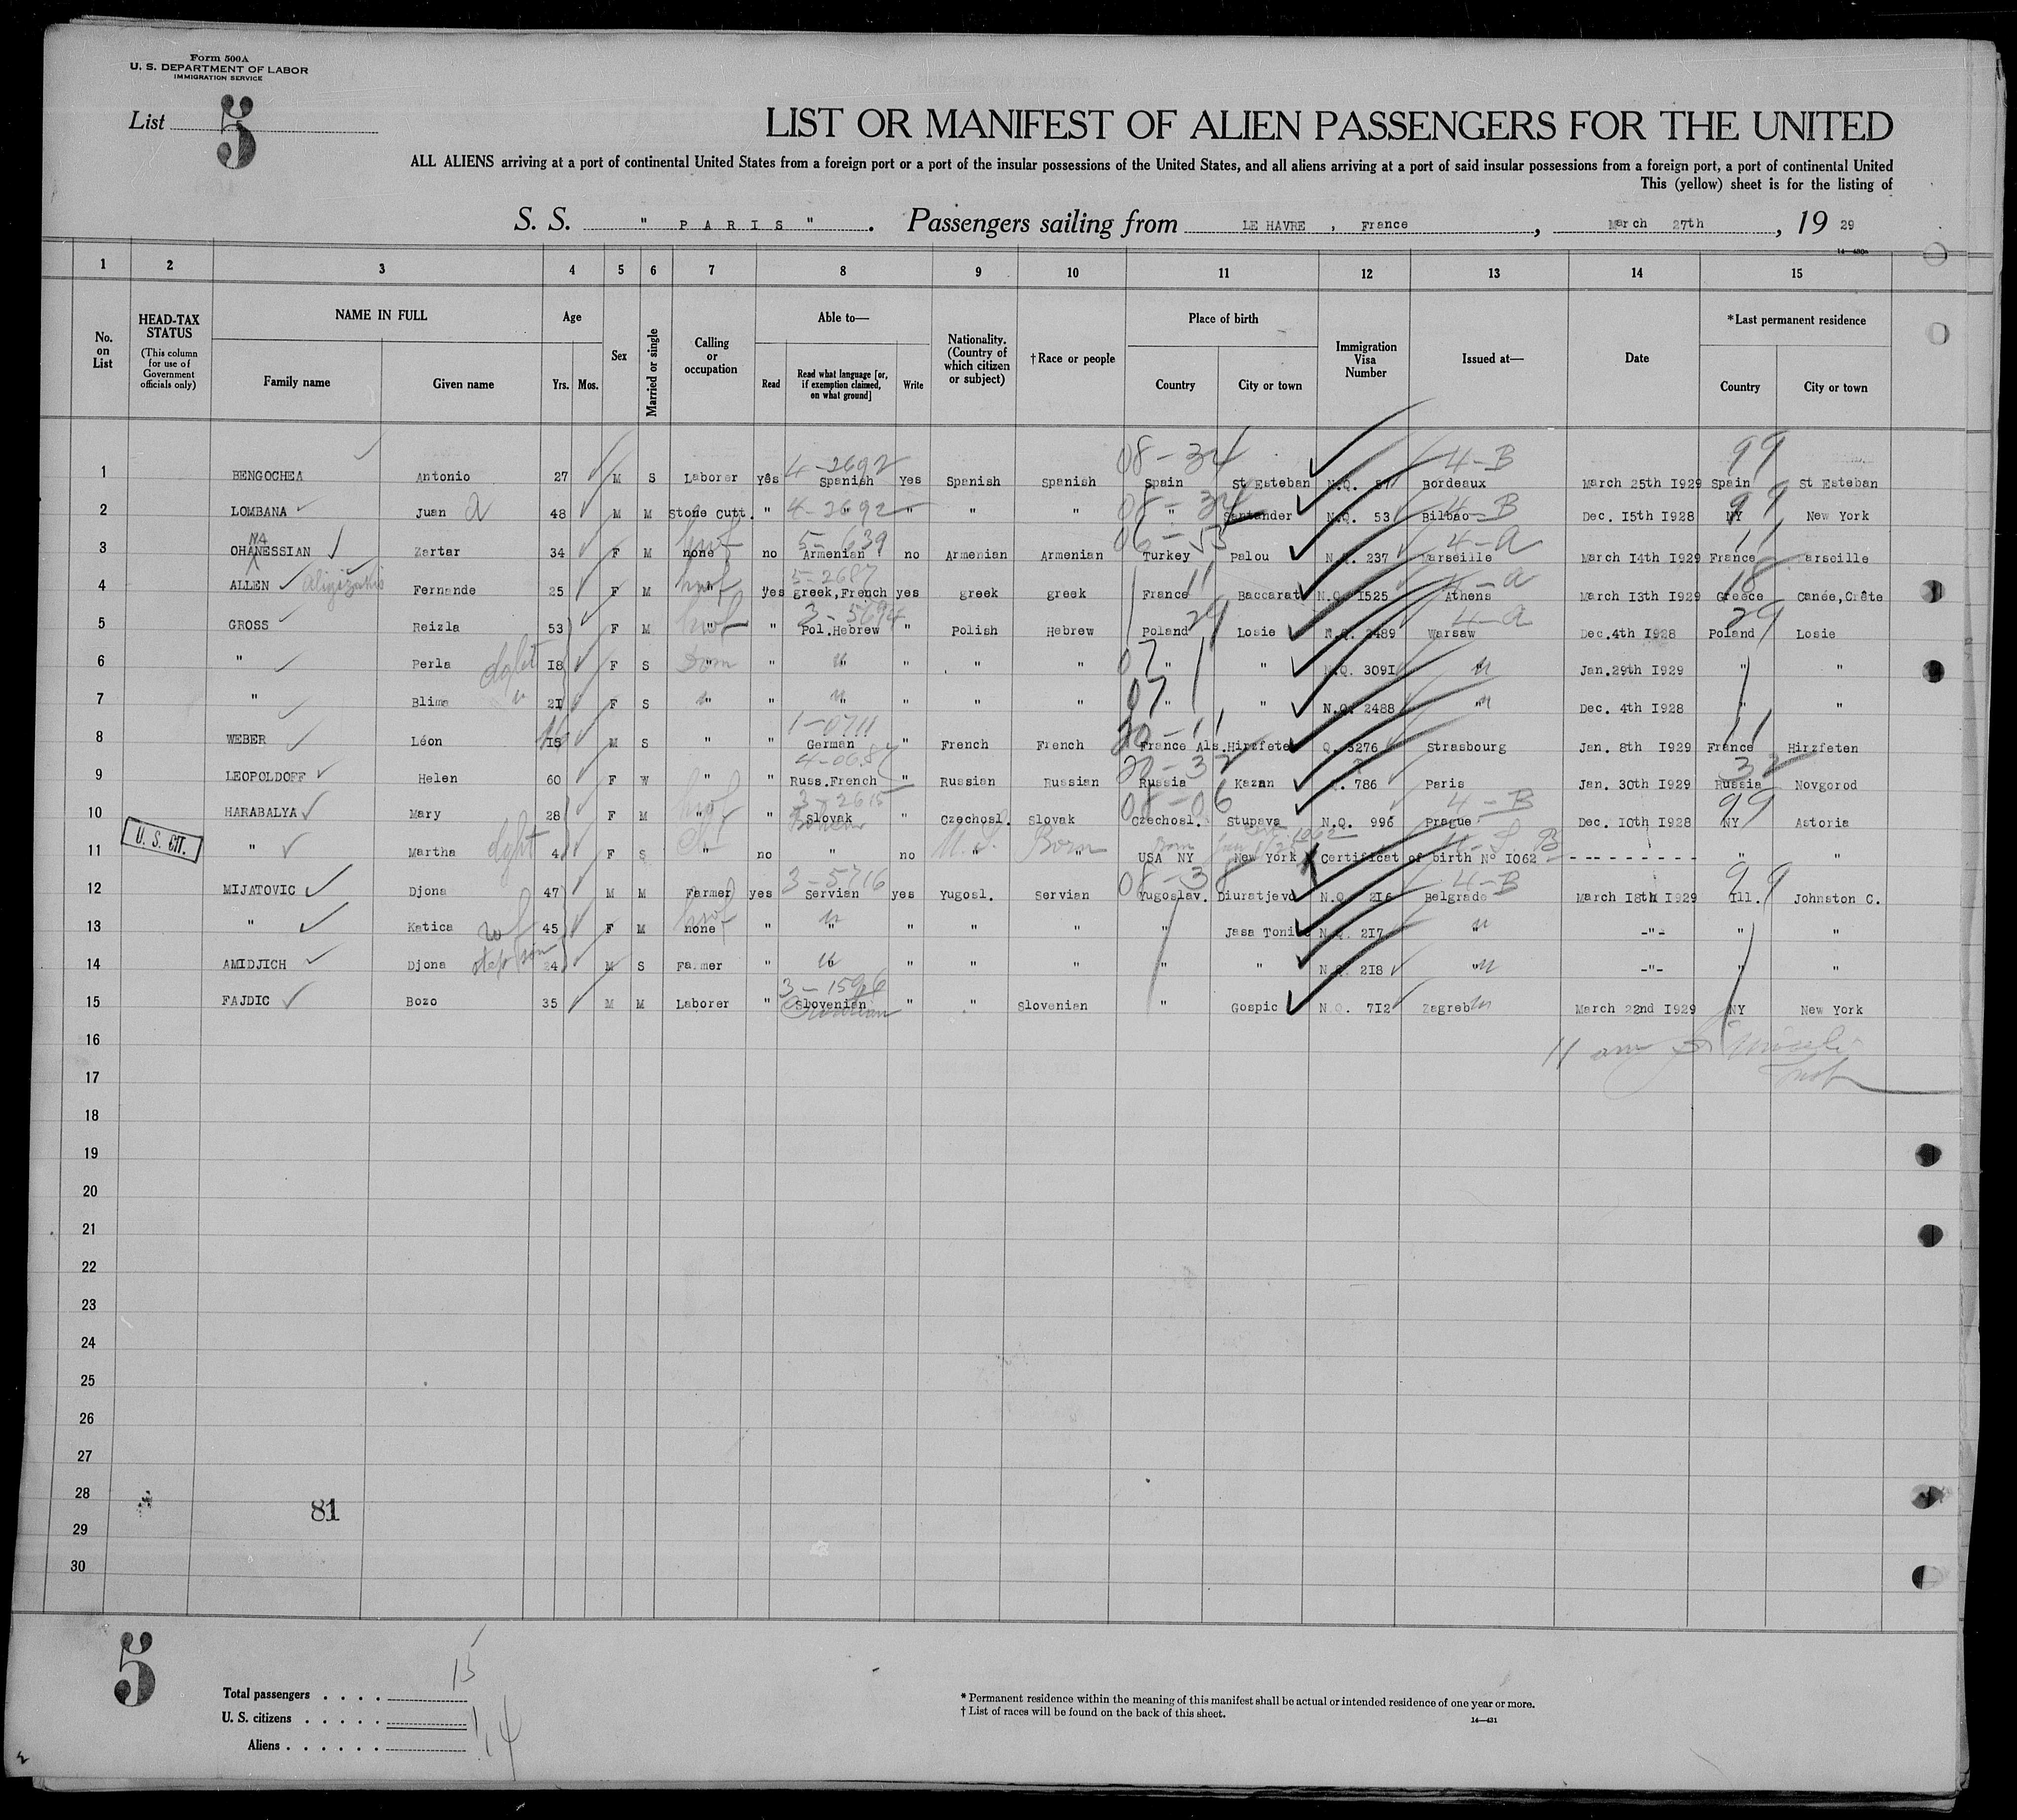 Form 500A
U. S. DEPARTMENT OF LABOR
IMMIGRATION SERVICE
List 5
LIST OR MANIFEST OF ALIEN PASSENGERS FOR THE UNITED
ALL ALIENS arriving at a port of continental United States from a foreign port or a port of the insular possessions of the United States, and all aliens arriving at a port of said insular possessions from a foreign port, a port of continental United
This (yellow) sheet is for the listing of
S. S. " PARIS " . Passengers sailing from LE HAVRE , France , March 27th , 19 29
14—430a
1 2 3 4 5 6 7 8 9 10 11 12 13 14 15
No. on List
HEAD-TAX STATUS
(This column for use of Government officials only)
NAME IN FULL
Family name Given name
Age
Yrs. Mos.
Sex
Married or single
Calling or occupation
Able to—
Read
Read what language [or, if exemption claimed, on what ground]
Write
Nationality. (Country of which citizen or subject)
†Race or people
Place of birth
Country City or town
Immigration Visa Number
Issued at—
Date
*Last permanent residence
Country City or town
08-34 4-B 99
4-2692
1 BENGOCHEA Antonio 27 M S Laborer yes Spanish yes Spanish Spanish Spain St Esteban N.Q. 57 Bordeaux March 25th 1929 Spain St Esteban
4-2692 08-34 4-B 99
2 LOMBANA Juan a 48 M M Stone Cutt. " " " " " " Santander N.Q. 53 Bilbao Dec. 15th 1928 NY New York
NA hwf 5-639 06-53 4-a 11
3 OHANESSIAN Zartar 34 F M none no Armenian no Armenian Armenian Turkey Palou N.Q. 237 Marseille March 14th 1929 France arseille
hwf 5-2687 11 4-a 18
4 ALLEN Fernande 25 F M " yes greek,French yes greek greek France Baccarat N.Q. 1525 Athens March 13th 1929 Greece Canée,Crête
hwf 3-5694 29 4-a 29
5 GROSS Reizla 53 F M " " Pol.Hebrew " Polish Hebrew Poland Losie N.Q. 2489 Warsaw Dec.4th 1928 Poland Losie
6 " Perla dght 18 F S Dom " " " " " " 07 " " N.Q. 3091 " Jan.29th 1929 " "
7 " Blima " 21 F S " " " " " " 07 " " N.Q. 2488 " Dec. 4th 1928 " "
1-0711 20-11 11
8 WEBER Léon 15 16 M S " " German " French French France Als. Hirzfete Q. 5276 Strasbourg Jan. 8th 1929 France Hirzfeten
4-0687 20-32 32
9 LEOPOLDOFF Helen 60 F W " " Russ.French " Russian Russian Russia Kazan Q. 786 Paris Jan. 30th 1929 Russia Novgorod
hwf 3-2615 08-06 4-B 99
10 HARABALYA Mary 28 F M " " Slovak " Czechosl. Slovak Czechosl. Stupava N.Q. 996 Prague Dec. 10th 1928 NY Astoria
U. S. CIT.
U.S. Born U-S. B
11 " Martha dght 4 F S " no " no " " USA NY New York Certificat of birth N° 1062 - - - - - - - - - - " "
3-5716 08-38 4-B 99
12 MIJATOVIC Djona 47 M M Farmer yes Servian yes Yugosl. Servian Yugoslav. Diuratjevo N.Q. 216 Belgrade March 18th 1929 Ill. Johnston C.
13 " Katica wf 45 F M none hwf " " " " " " Jasa Toni N.Q. 217 " -"- " "
14 AMIDJICH Djona step son 24 M S Farmer " " " " " " " N.Q. 218 " -"- " "
3-1596
15 FAJDIC Bozo 35 M M Laborer " Slovenian " " Slovenian " Gospic N.Q. 712 Zagreb March 22nd 1929 NY New York
Croatian
16
17
18
19
20
21
22
23
24
25
26
27
28 81
29
30
5
Total passengers . . . . 15
U. S. citizens . . . . . 1
Aliens . . . . . . 14
* Permanent residence within the meaning of this manifest shall be actual or intended residence of one year or more.
† List of races will be found on the back of this sheet.
14—431